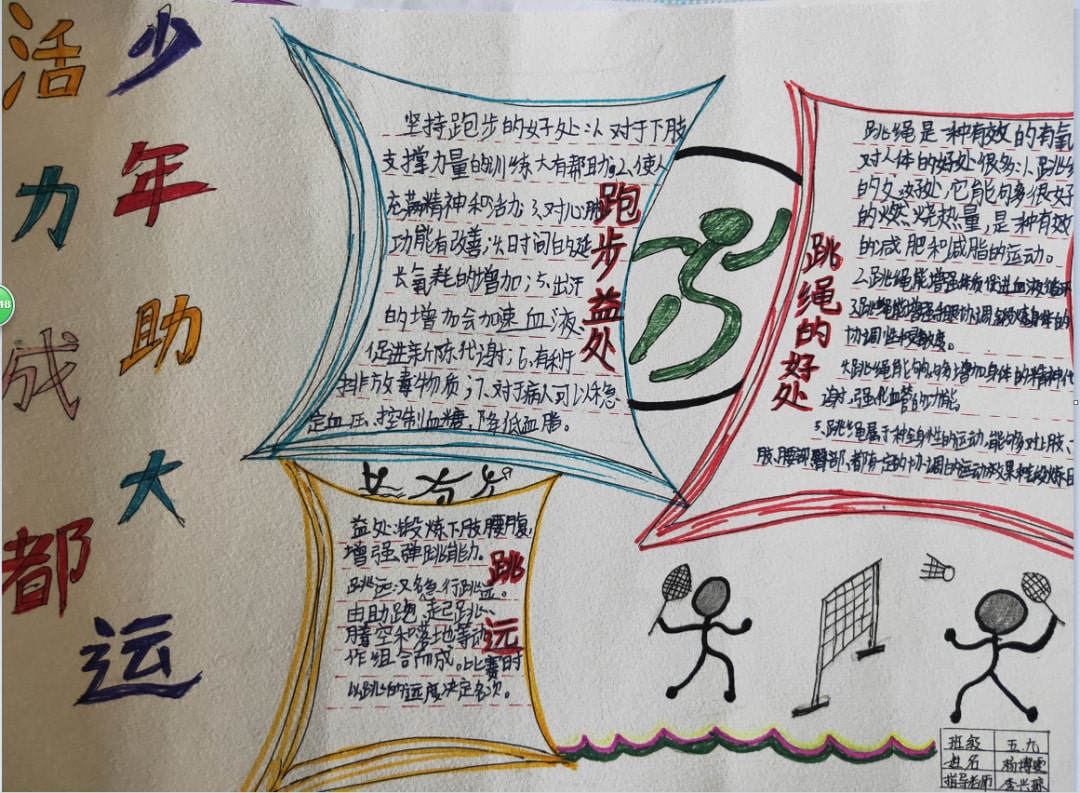 少年助大运
活力成都
坚持跑步的好处:1、对于下肢
支撑力量的训练大有帮助。2、使人
充满精神和活力;3、对心肺
功能有改善;4、时间的延
长氧耗的增加;5、出汗
的增加会加速血液、
促进新陈代谢;6、有利于
排放毒物质;7、对于病人可以稳
定血压、控制血糖,降低血脂。
跑步益处
跳绳是一种有效的有氧
对人体的好处很多:1、跳绳
的好处,它能够很好
的燃烧热量,是一种有效
的减肥和减脂的运动。
2、跳绳能增强体质促进血液循环
3、跳绳能增强手眼协调锻炼身体的
协调性根敏度。
4、跳绳能够增加身体的精神代
谢,强化血管的功能
5、跳绳属于种全身性的运动,能够对上肢、
肢、腰部臀部,都有一定的协调的运动效果
跳绳的好处
益处:锻炼下肢腰腹,
增强弹跳能力。
跳远:又名急行跳远。
由助跑、起跳、
腾空和落地等动
作组合而成。比赛时
以跳的远度决定名次。
跳远
班级 五.九
姓名 杨博雯
指导老师 李兴
48